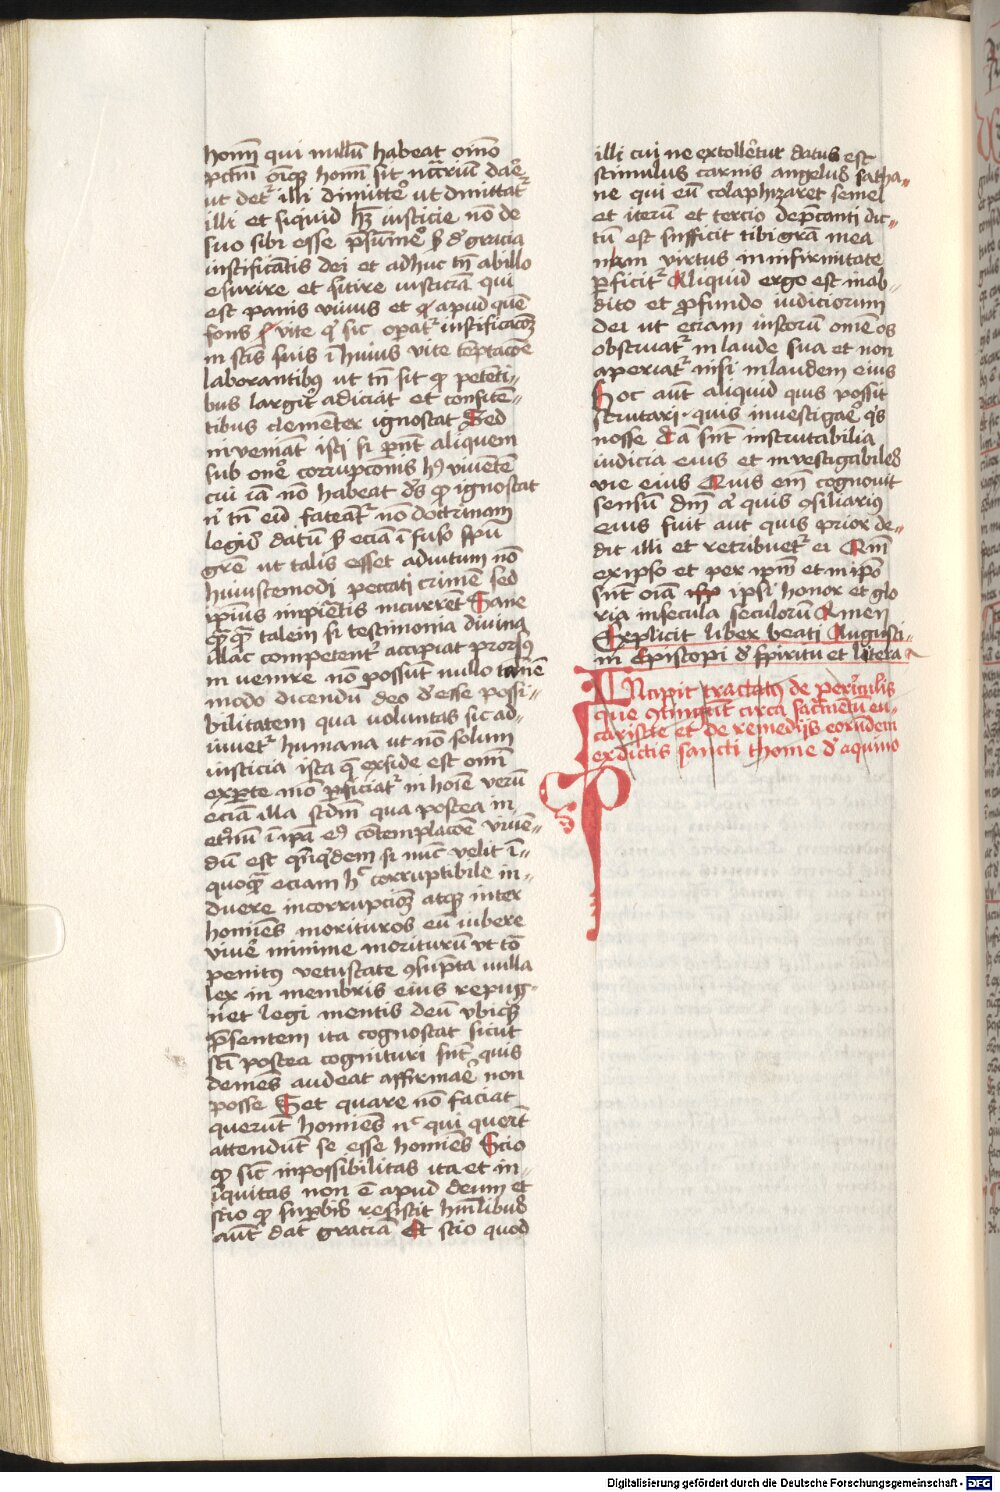 homī qui nullū habeat oīno
pctm̄ oīqꝫ homī sit nccariū dae͛
ut det͛ illi dimitte͛ ut dimittat͛
illi et siquid hꝫ iusticie nō de
suo sibi esse p̄sume͛ ꝫ d͛ gracia
iustificātis dei et adhuc tn̄ ab illo
esurire et sitire iusticiā qui
est panis vivus et apud quē
fons vite qͥ sic opat͛ iustificacōꝫ
in scīs suis ī huius vite tēptacōe
laborantibꝰ ut tn̄ sit qd petēti-
bus largit͛ adiciat et confitē-
tibus clemēter ignoscat Sed
inveniāt isti si pn̄t aliquem
sub one͛ corrupcōnis hꝰ viventē
cui iā nō habeat ds̄ qd ignoscat
tn̄ eū fateāt͛ nō doctrinam
legis datū ꝫ eciā īfuso spū
grē ut talis esset adiutum nō
huiuscemodi peccati crimē sed
ipīus impietatis incurret Sane
qͣqͣ talem si testimonia divina
illac competent͛ accipiat prorsꝰ
in venire nō possūt nullo tamē
modo dicendū deo d͛esse possi-
bilitatem qua voluntas sic ad-
iuvet͛ humana ut nō solum
iusticia ista q̄ ex fide est omī
exparte mō p̄ficiat͛ in hoīe verū
eciā illa scdm̄ qua postea in
et͛nū ī ipa eꝰ cōtemplacōe viven-
dū est qn̄qͥdem si nūc velit ī-
quoqͣ eciam hͦ corruptibile in-
duere incorrupcōꝫ atqꝫ inter
homīes morituros eū iubere
vive͛ minime moriturū ut tō
penitꝰ vetustate ꝯsūpta nulla
lex in membris eius repug-
net legi mentis deū ubiqꝫ
p̄sentem ita cognoscat sicut
scī postea cognituri sūt quis
demēs audeat affirmae͛ non
posse Set quare nō faciat
querūt homīes nͨ qui querūt
attendūt se esse homīes Scio
qd sic inpossibilitas ita et in-
iquitas non ē apud deum et
scio qd supbis resistit hūilibus
aut̄ dat graciā Et scio quod
illi cui ne extolle͛tur datus est
stimulus carnis angelus satha-
ne qui eū colaphizaret semel
et iterū et tercio depcanti dic-
tū est sufficit tibi grā mea
nam virtus in infirmitate
p̄ficit͛ Aliquid ergo est in ab-
dito et pfundo iudiciorum
dei ut eciam iustorū omē os
obstruat͛ in laude sua et non
aperiat͛ nisi in laudem eius
Hoc aut̄ aliquid quis possit
scrutari quis investigae͛ qͥs
nosse tā sūt inscrutabilia
iudicia eius et investigabiles
vie eius Quis em̄ cognovit
sensū dm̄ aͬ quis ꝯsiliariꝰ
eius fuit aut quis prior de-
dit illi et retribuet͛ ei Qm̄
ex ipso et per ipm̄ et in ipō
sūt oīa ipsi honor et glo
ria in secula seculorū Amen
Explicit liber beati Augusti-
ni Episcopi d͛ spiritu et litera
INcipit tractatꝰ de periculis
que ꝯtingūt circa sacrmētū eu-
caristie et de remedijs eorundem
ex dictis sancti thome d͛ aquino
P
Digitalisierung gefördert durch die Deutsche Forschungsgemeinschaft - DFG